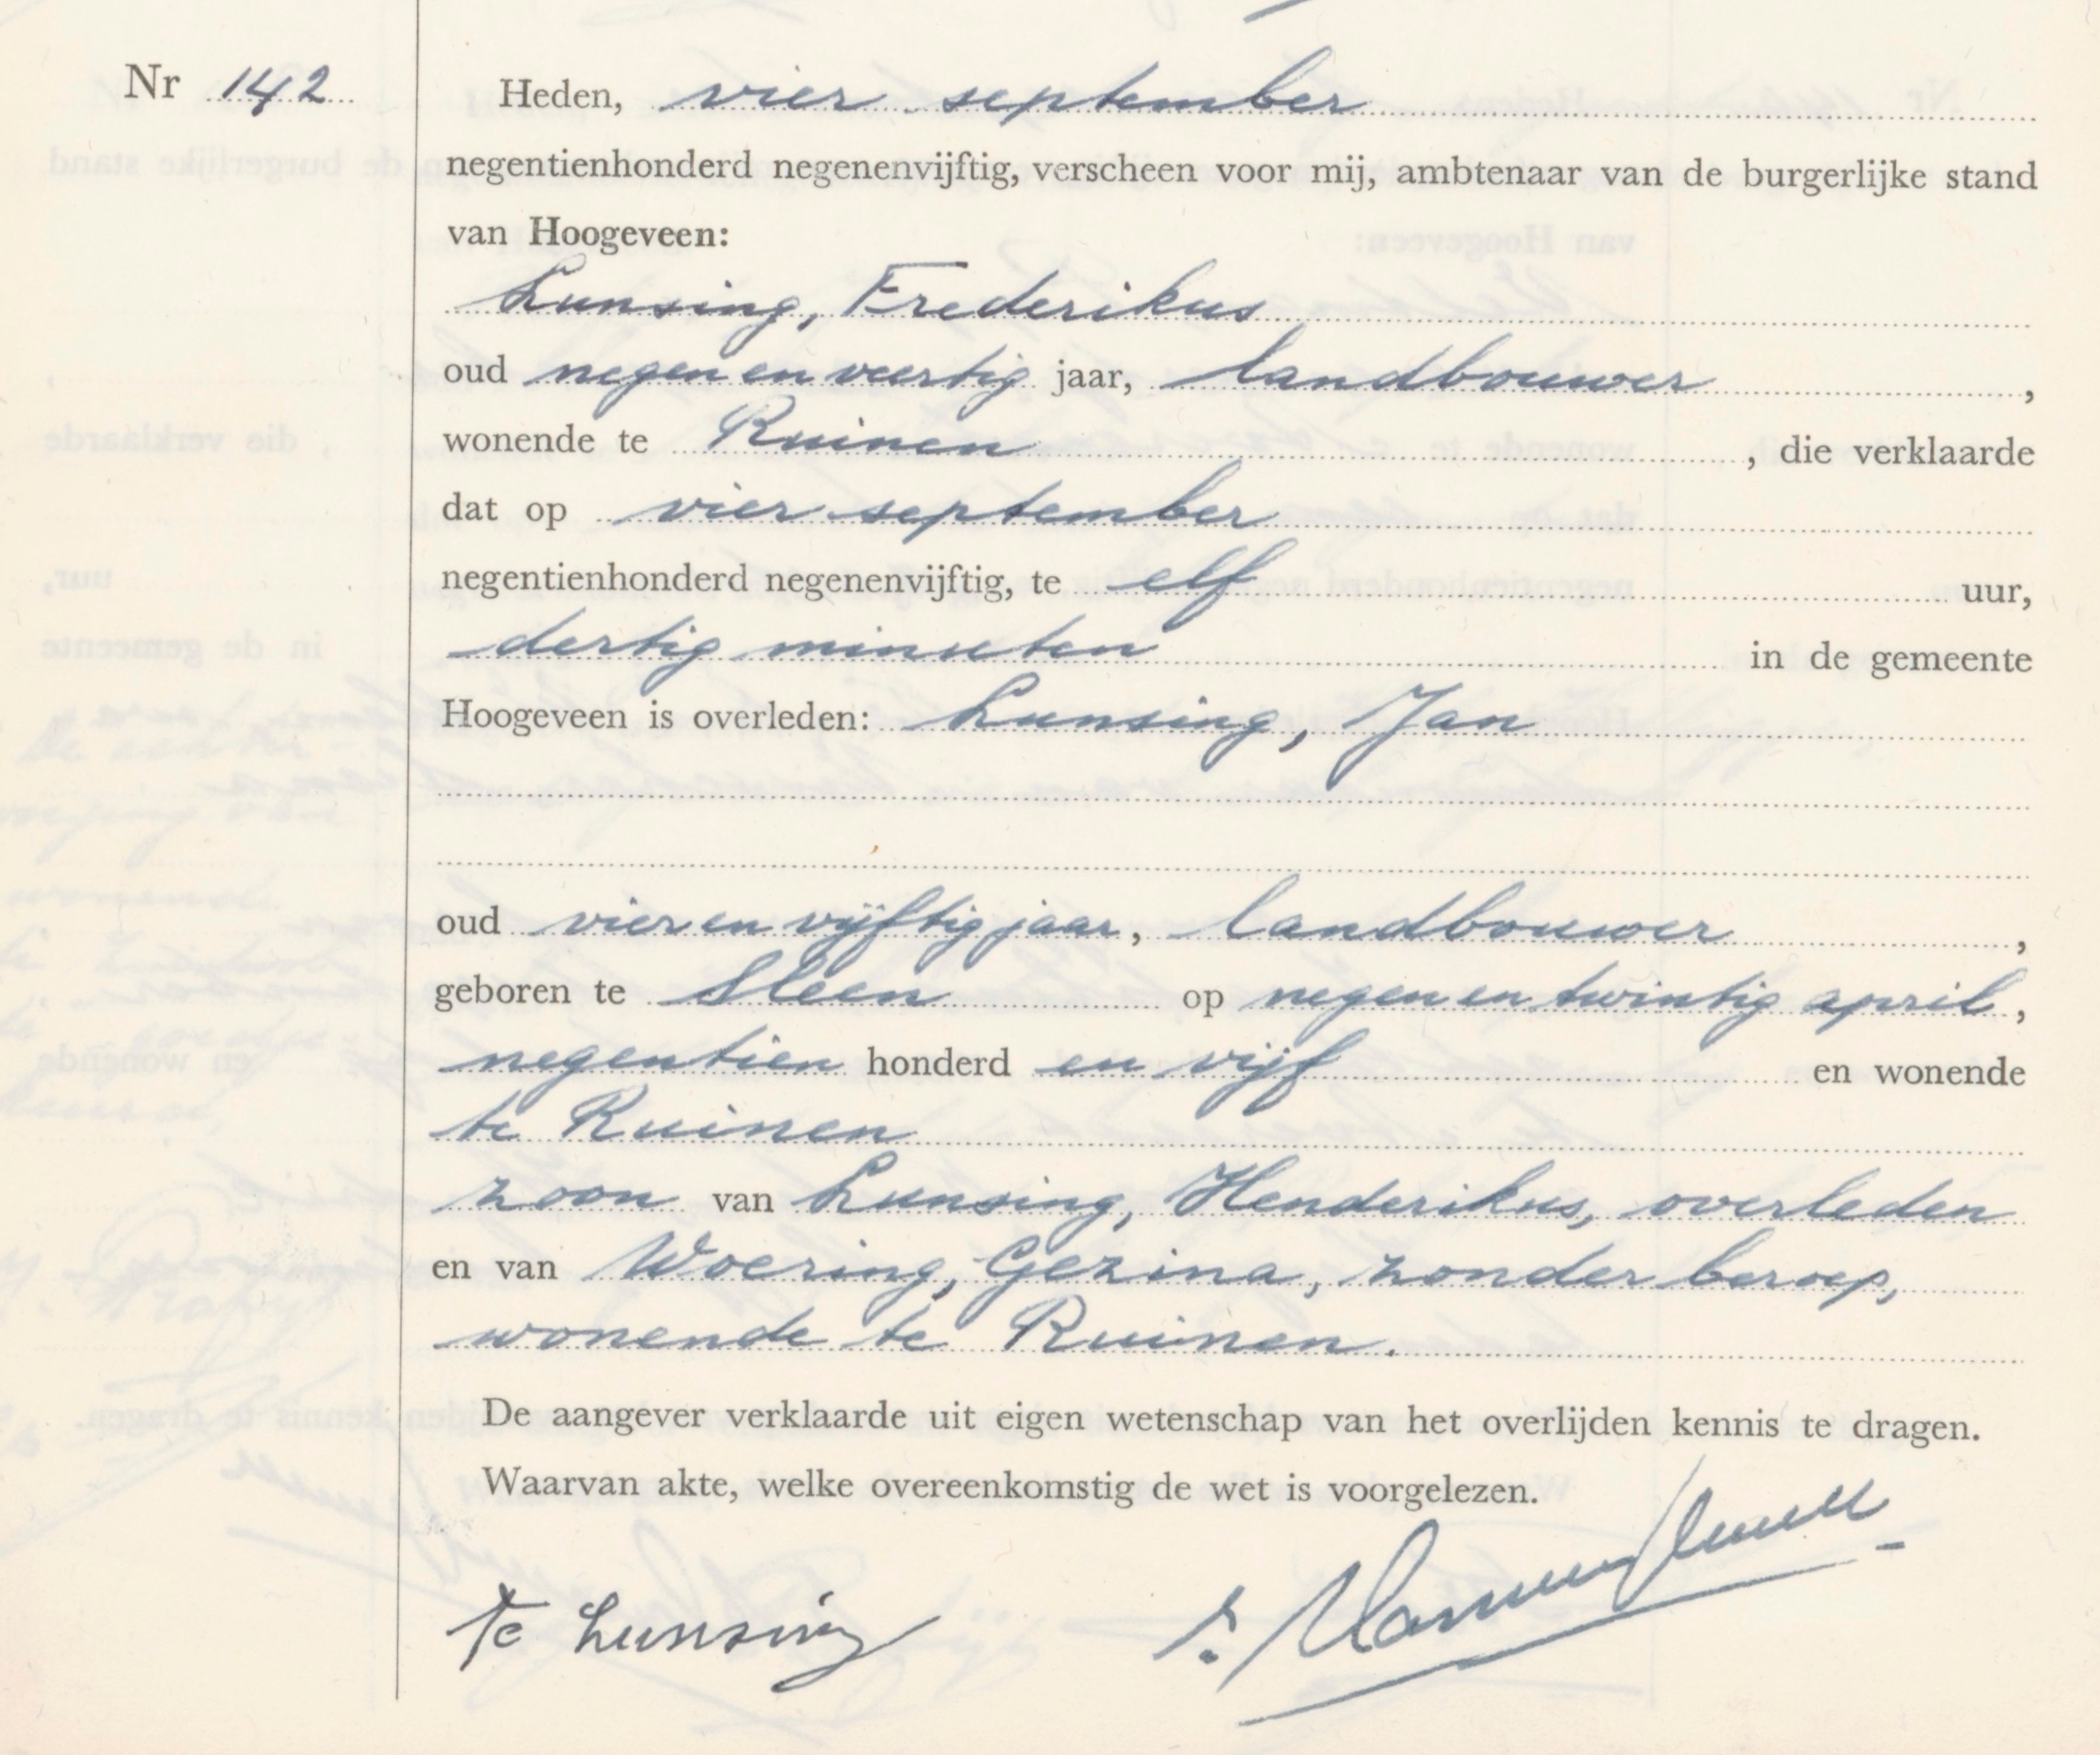 Nr 142
Heden, vier september
negentienhonderd negenenvijftig, verscheen voor mij, ambtenaar van de burgerlijke stand
van Hoogeveen:
Lunsing, Frederikus
oud negen en veertig jaar, landbouwer,
wonende te Ruinen, die verklaarde
dat op vier september
negentienhonderd negenenvijftig, te elf uur,
dertig minuten in de gemeente
Hoogeveen is overleden: Lunsing, Jan
oud vier en vijftig jaar, landbouwer,
geboren te Sleen op negen en twintig april,
negentien honderd en vijf en wonende
te Ruinen
zoon van Lunsing, Henderikus, overleden
en van Woering, Gezina, zonder beroep,
wonende te Ruinen.
De aangever verklaarde uit eigen wetenschap van het overlijden kennis te dragen.
Waarvan akte, welke overeenkomstig de wet is voorgelezen.
Lunsing